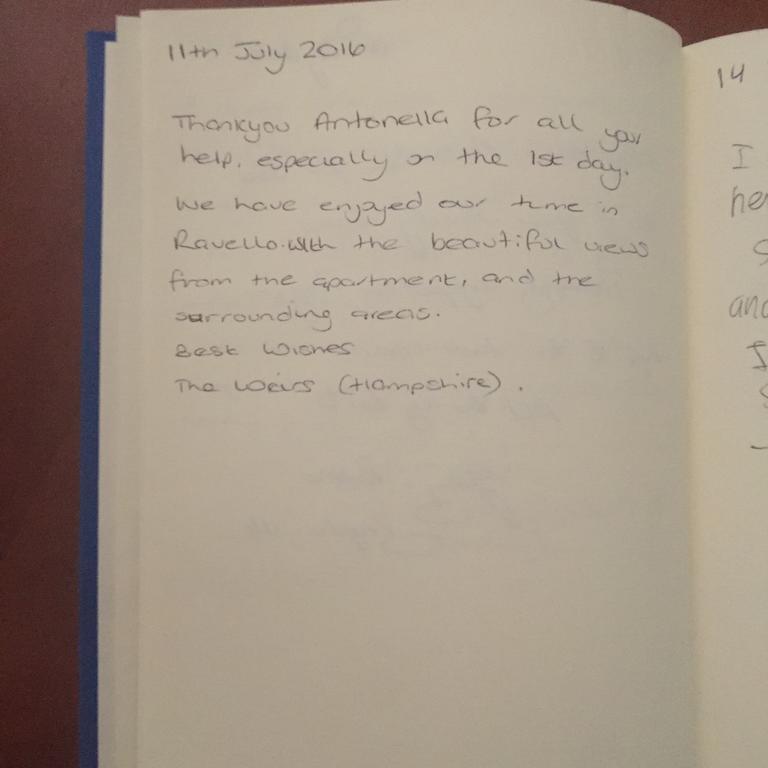 11th July 2016
Thankyou Antonella for all your
help, especially on the 1st day.
We have enjoyed our time in
Ravello with the beautiful views
from the apartment, and the
surrounding areas.
Best Wishes
The Weirs (Hampshire).
14
I